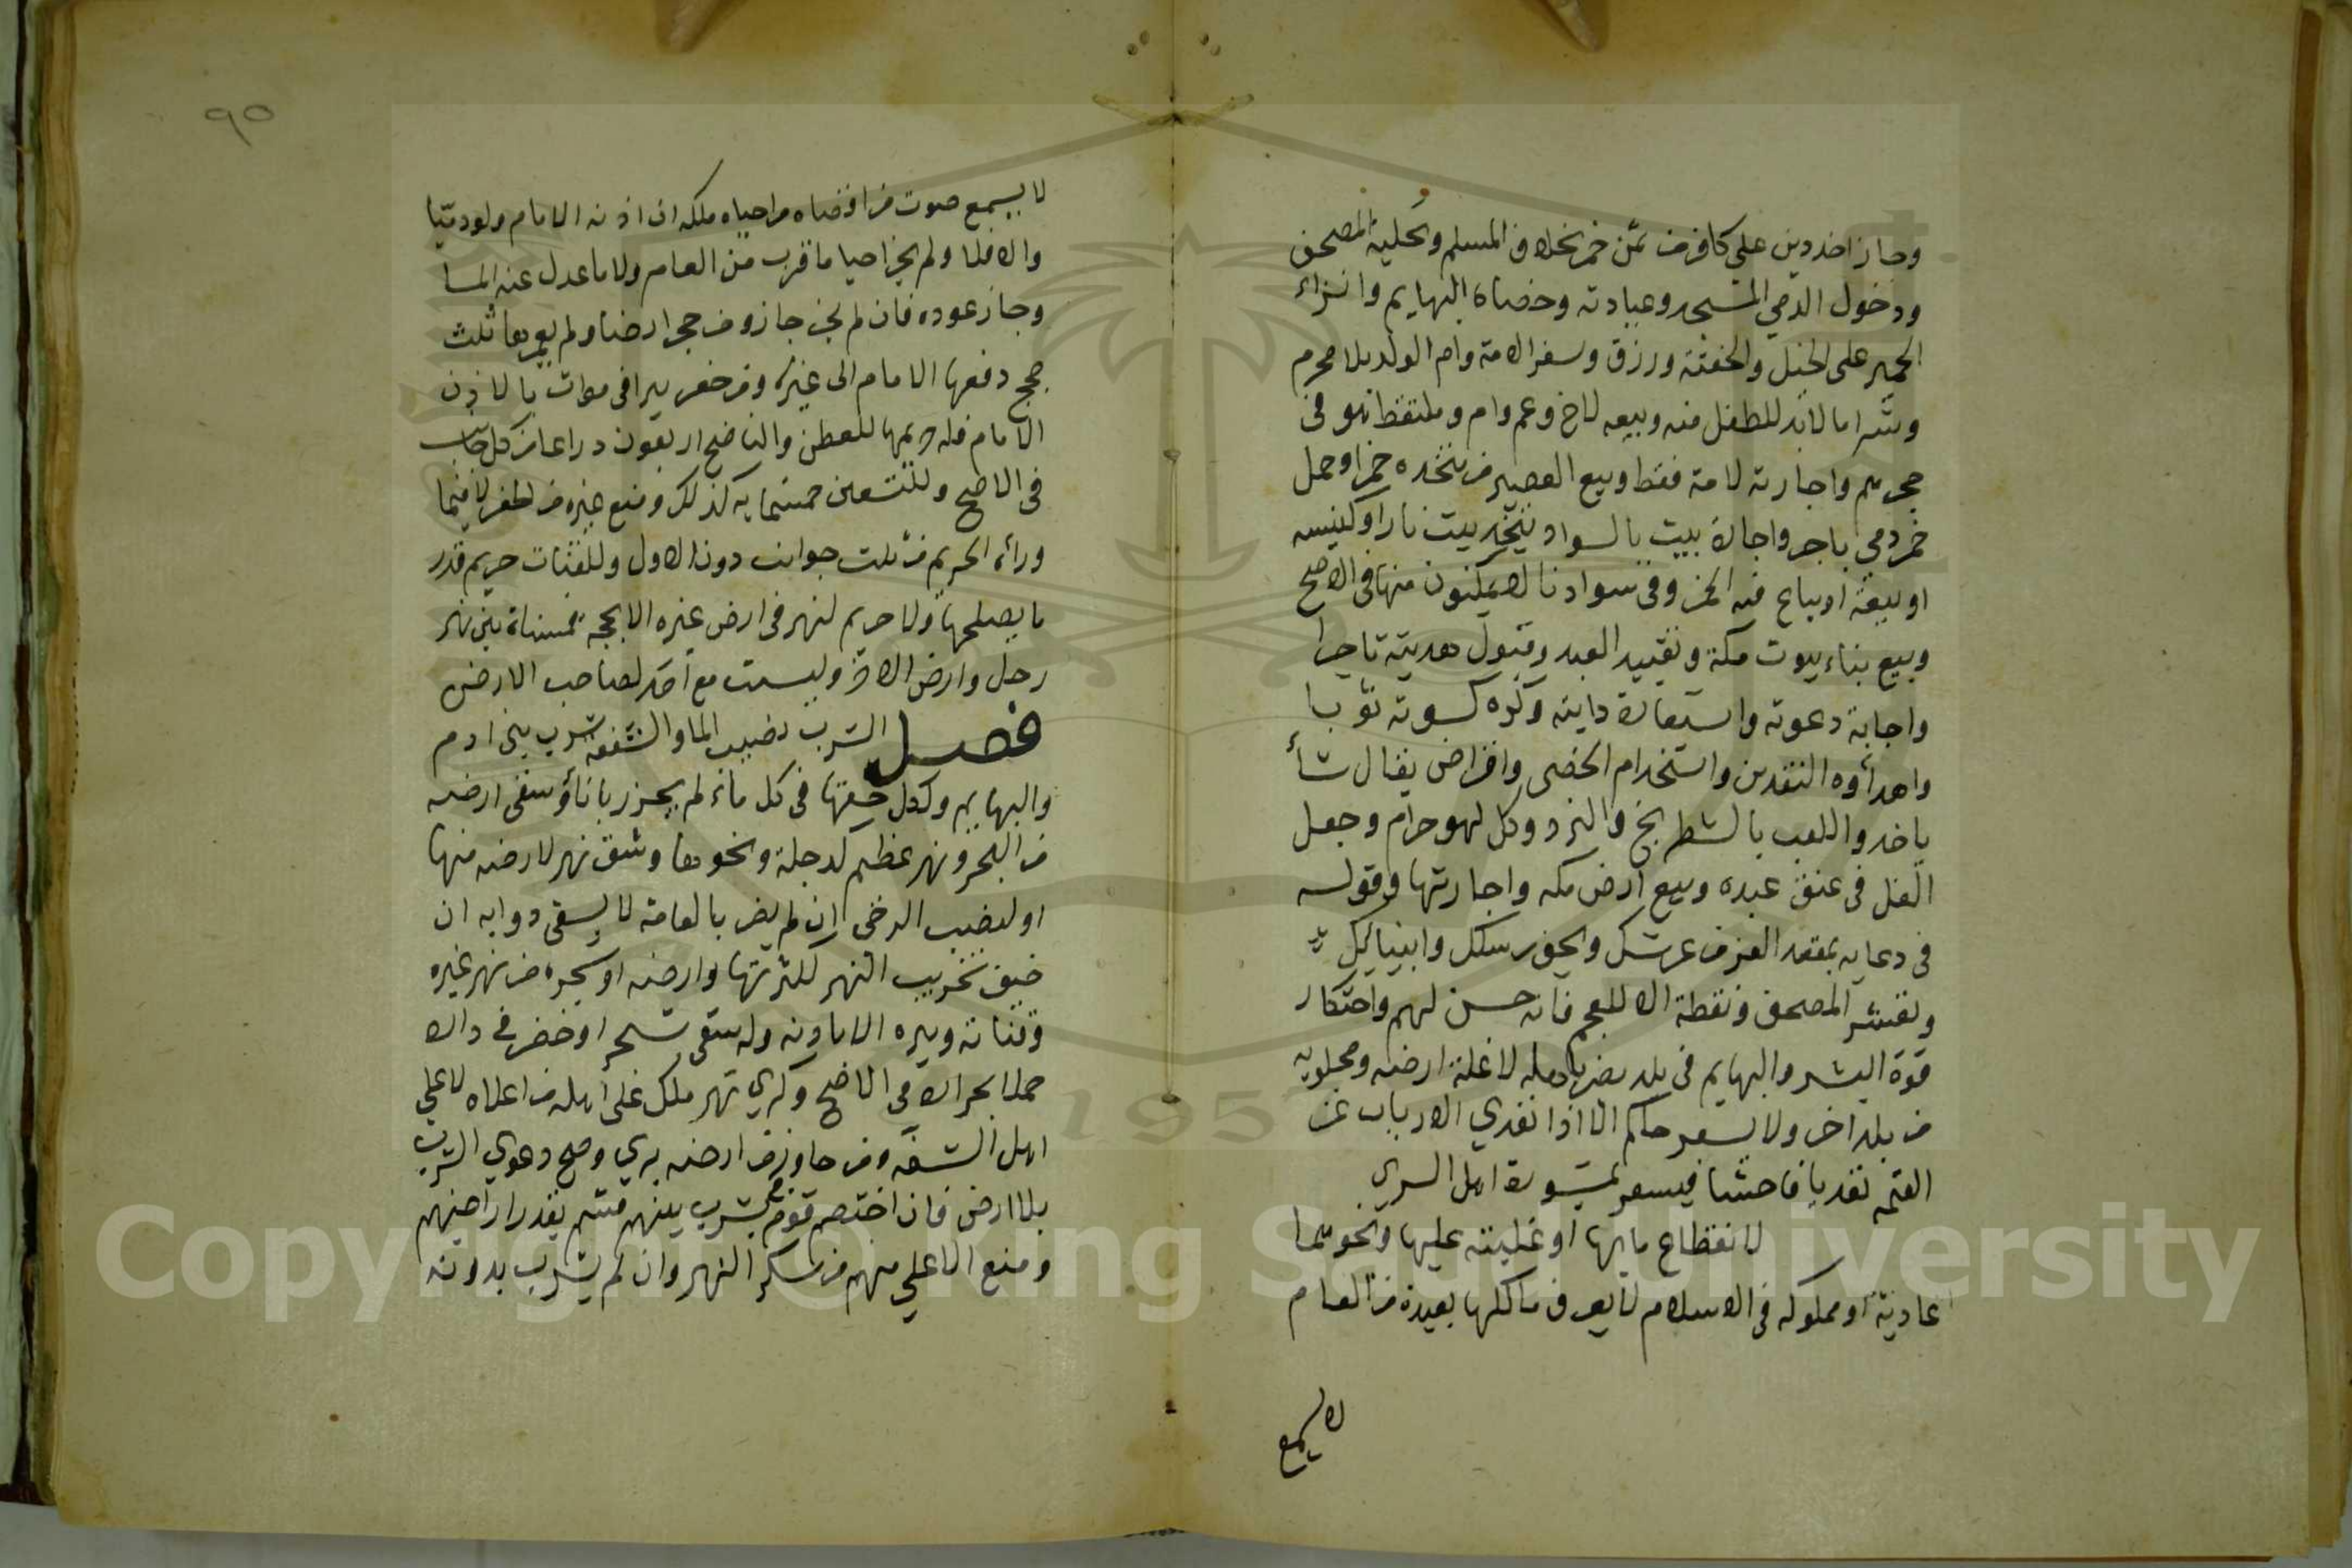 وجاز اخذ دين على كافر من ثمن خمر بخلاف المسلم وتحلية المصحف
ودخول الذمي المسجد وعيادته وخصاء البهايم وانزاء
الحمير على الخيل والحقنة ورزق وسفر الامة وام الولد بلا محرم
وشرا ما لابد للطفل منه وبيعه لاخ وعم وام وملتقط هو في
حجرهم واجارته لامه فقط وبيع العصير من متخذه خمرا وحمل
خمر ذمي باجر واجارة بيت بالسواد ليتخذ بيت نار او كنيسه
او بيعة او يباع فيه الخمر وفي سوادنا لا يمكنون منها في الاصح
وبيع بناء بيوت مكة وتقييد العبد وقبول هديته تاجرا
واجابة دعوته واستعارة دابته وكره كسوته ثوبا
واهداؤه النقدين واستخدام الخصى واقراض بقال شأ
ياخذ واللعب بالشطرنج والنرد وكل لهو حرام وجعل
الغل في عنق عبده وبيع ارض مكه واجارتها وقوله
في دعايه بمقعد العز من عرشك وبحق رسلك وانبيايك
وتعشير المصحف ونقطه الا للعجم فانه حسن لهم واحتكار
قوة البشر والبهايم في بلد يضر باهله لا غلة ارضه ومجلوبه
من بلد اخر ولا يسعر حاكم الا اذا تعدي الارباب عن
القيمة تعديا فاحشا فيسعر بمشورة اهل الري
لانقطاع مايها او غلبته عليها ونحوهما
عادية او مملوكه في الاسلام لا يعرف مالكها بعيدة من العام
لا يسمع
٩٥
لا يسمع صوت من اقصاه من احياه ملكه ان اذنه الامام ولو ذميا
والا فلا ولم يجز احيا ما قرب من العامر ولا ما عدل عنه الما
وجاز عوده فان لم يجز جاز ومن حجر ارضا ولم يعمرها ثلث
حجج دفعها الامام الى غيره ومن حفر بيرا في موات بالاذن
الامام فله حريمها للعطن والناضح اربعون ذراعا من كل جانب
في الاصح وللعين خمسماية كذلك ومنع غيره من الحفر لا فيما
وراء الحريم من ثلث جوانب دون الاول وللقنات حريم قدر
ما يصلحها ولا حريم لنهر في ارض غيره الا بحجة فمسناة بين نهر
رجل وارض الاخر وليست مع احد لصاحب الارض
فصل الشرب نصيب الما والشفعة شرب بني ادم
والبهايم ولكل حقها في كل ماء لم يحرز باناؤ سقى ارضه
من البحر ونهر عظيم كدجلة ونحوها وشق نهر لارضه منها
او لنصب الرخى ان لم يضر بالعامة لا يسقى دوابه ان
خيف تخريب النهر لكثرتها وارضه او شجره من نهر غيره
وقناته وبيره الا باذنه وله سقى شجر او خضر في داره
حملا بجراره في الاصح وكري نهر ملك على اهله من اعلاه لا على
اهل الشفة ومن جاوز من ارضه بري وصح دعوي الشرب
بلا ارض فان اختصم قوم في شرب بينهم قسم بقدر اراضيهم
ومنع الاعلي منهم من سكر النهر وان لم يشرب بدونه
Copyright © King Saud University
195